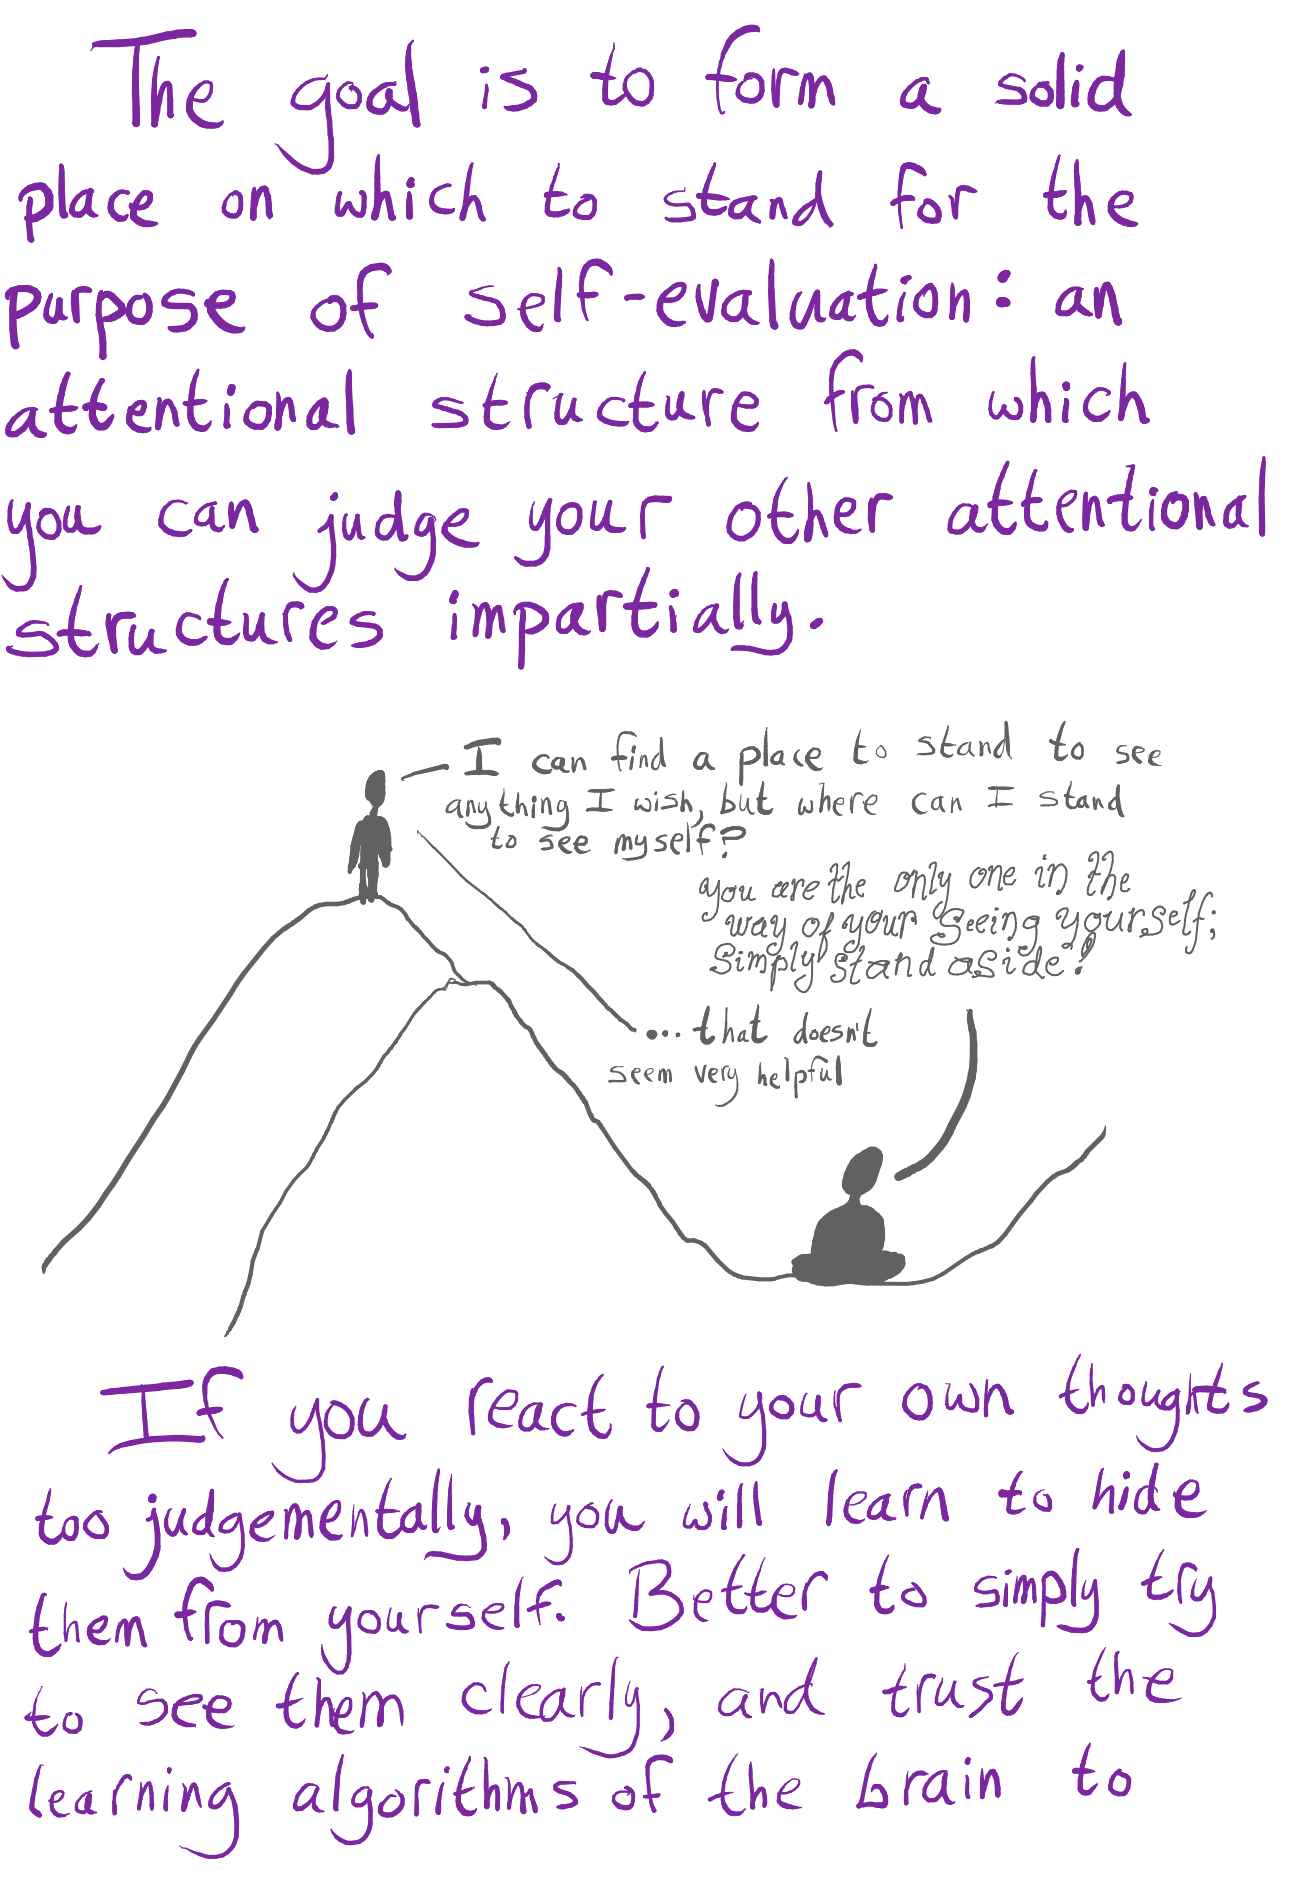 The goal is to form a solid
place on which to stand for the
purpose of self-evaluation: an
attentional structure from which
you can judge your other attentional
structures impartially.
I can find a place to stand to see
anything I wish, but where can I stand
to see myself?
you are the only one in the
way of your seeing yourself;
simply stand aside!
... that doesn't
seem very helpful
If you react to your own thoughts
too judgementally, you will learn to hide
them from yourself. Better to simply try
to see them clearly, and trust the
learning algorithms of the brain to